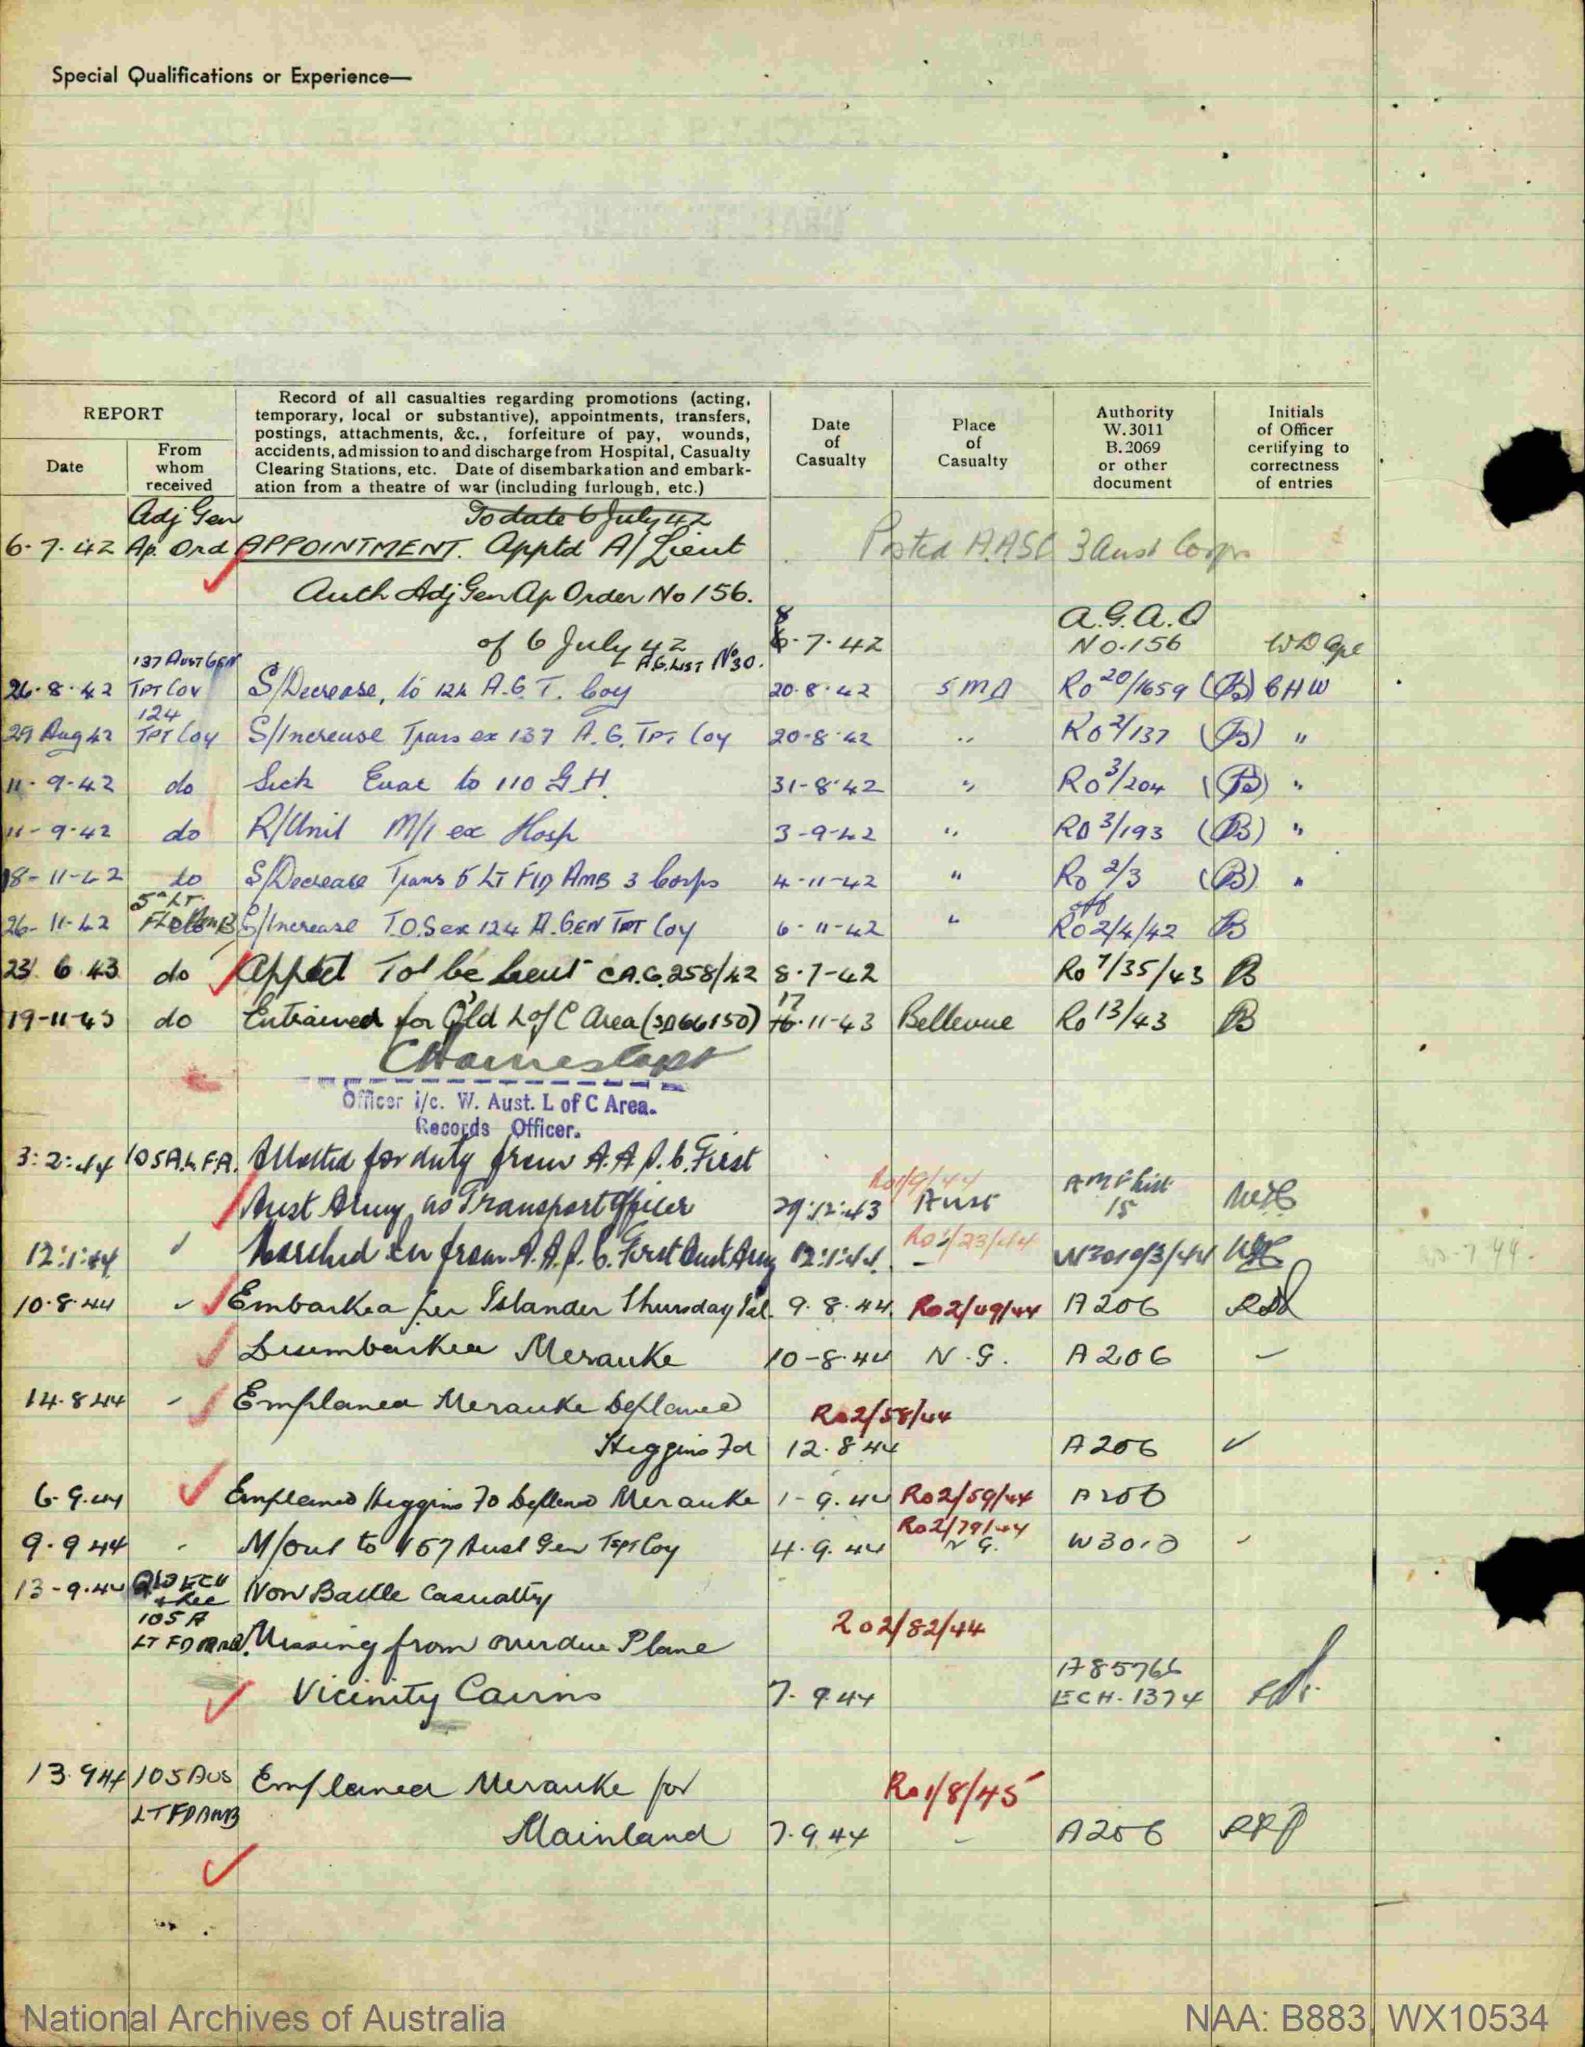 Special Qualifications or Experience—
REPORT
Date
From
whom
received
Record of all casualties regarding promotions (acting,
temporary, local or substantive), appointments, transfers,
postings, attachments, &c., forfeiture of pay, wounds,
accidents, admission to and discharge from Hospital, Casualty
Clearing Stations, etc. Date of disembarkation and embark-
ation from a theatre of war (including furlough, etc.)
Date
of
Casualty
Place
of
Casualty
Authority
W.3011
B.2069
or other
document
Initials
of Officer
certifying to
correctness
of entries
Adj Gen To date 6 July 42
6-7-42 Ap. Ord APPOINTMENT. Apptd A/Lieut Posted AASC 3 Aust Corps
Auth Adj Gen Ap Order No 156.
of 6 July 42 8-7-42 A.G.A.O No.156
A.G. LIST No 30.
137 AUST GEN
26-8-42 TPT COY S/Decrease, to 124 A.G.T. Coy 20-8-42 5 MD Ro 20/1659 (B) CHW
124
29 Aug 42 TPT Coy S/Increase Trans ex 137 A.G. TPT Coy 20-8-42 " Ro 2/137 (B) "
11-9-42 do Sick Evac to 110 G.H. 31-8-42 " Ro 3/204 (B) "
11-9-42 do R/Unit M/I ex Hosp 3-9-42 " RO 3/193 (B) "
18-11-42 do S/Decrease Trans 5 LT FLD AMB 3 Corps 4-11-42 " Ro 2/3 (B) "
5th LT
26-11-42 FLD AMB S/Increase T.O.S ex 124 A.GEN TPT Coy 6-11-42 " Ro 2/4/42 B
23 6 43 do Apptd To be Lieut CA.G.258/42 8-7-42 Ro 7/35/43 B
19-11-43 do Entrained for Q'ld L of C Area (SD66150) 17-11-43 Bellevue Ro 13/43 B
Officer i/c. W. Aust. L of C Area.
Records Officer.
3:2:44 105 A.L.F.A. Allotted for duty from A.A.S.C. First
Ro1/9/44
Aust Army as Transport Officer 29:12:43 Aust AMF List 15
12:1:44 Marched In from A.A.S.C. First Aust Army 12:1:44 – W3010/3/44
10-8-44 Embarked per Islander Thursday Isl. 9.8.44 Ro2/49/44 A206
Disembarked Merauke 10-8-44 N.G. A206
14.8.44 Emplaned Merauke Deplaned Ro2/58/44
Higgins Fd 12.8.44 A206
6-9-44 Emplaned Higgins Fd Deplaned Merauke 1-9-44 Ro2/59/44 A206
Ro2/79/44
9.9.44 M/out to 157 Aust Gen Tspt Coy 4.9.44 N G. W3010
13-9-44 Qld ECH & Rec Non Battle Casualty
105 A
LT FD AMB. Missing from overdue Plane Ro2/82/44
Vicinity Cairns 7.9.44 A85766
ECH.1374
13.9.44 105 Aus Emplaned Merauke for Ro1/8/45
LT FD AMB Mainland 7.9.44 – A206
National Archives of Australia
NAA: B883, WX10534